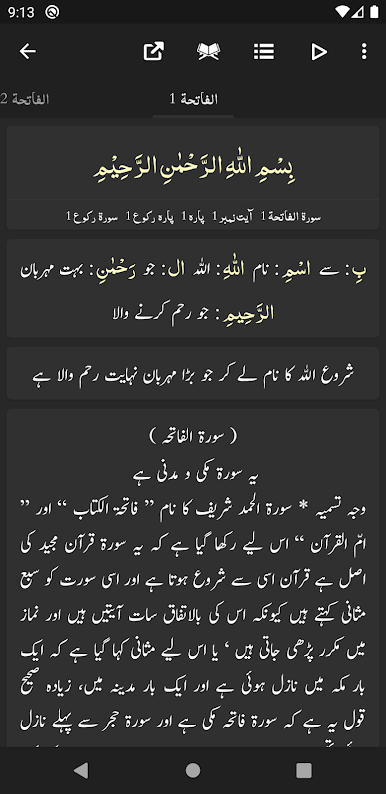 9:13
الفاتحة 1
الفاتحة 2
بِسْمِ اللّٰهِ الرَّحْمٰنِ الرَّحِيْمِ
سورة الفاتحة 1 آیت نمبر 1 پارہ 1 پارہ رکوع 1 سورۃ رکوع 1
بِ: سے اسْمِ: نام اللّٰهِ: اللہ ال: جو رَحْمٰنِ: بہت مہربان
الرَّحِيمِ: جو رحم کرنے والا
شروع اللہ کا نام لے کر جو بڑا مہربان نہایت رحم والا ہے
( سورۃ الفاتحہ )
یہ سورۃ مکی و مدنی ہے
وجہ تسمیہ * سورۃ الحمد شریف کا نام ” فاتحۃ الکتاب “ اور ”
امّ القرآن “ اس لیے رکھا گیا ہے کہ یہ سورۃ قرآن مجید کی
اصل ہے قرآن اسی سے شروع ہوتا ہے اور اسی سورت کو سبع
مثانی کہتے ہیں کیونکہ اس کی بالاتفاق سات آیتیں ہیں اور نماز
میں مکرر پڑھی جاتی ہیں ‘ یا اس لیے مثانی کہا گیا ہے کہ ایک
بار مکہ میں نازل ہوئی ہے اور ایک بار مدینہ میں، زیادہ صحیح
قول یہ ہے کہ سورۃ فاتحہ مکی ہے اور سورۃ حجر سے پہلے نازل